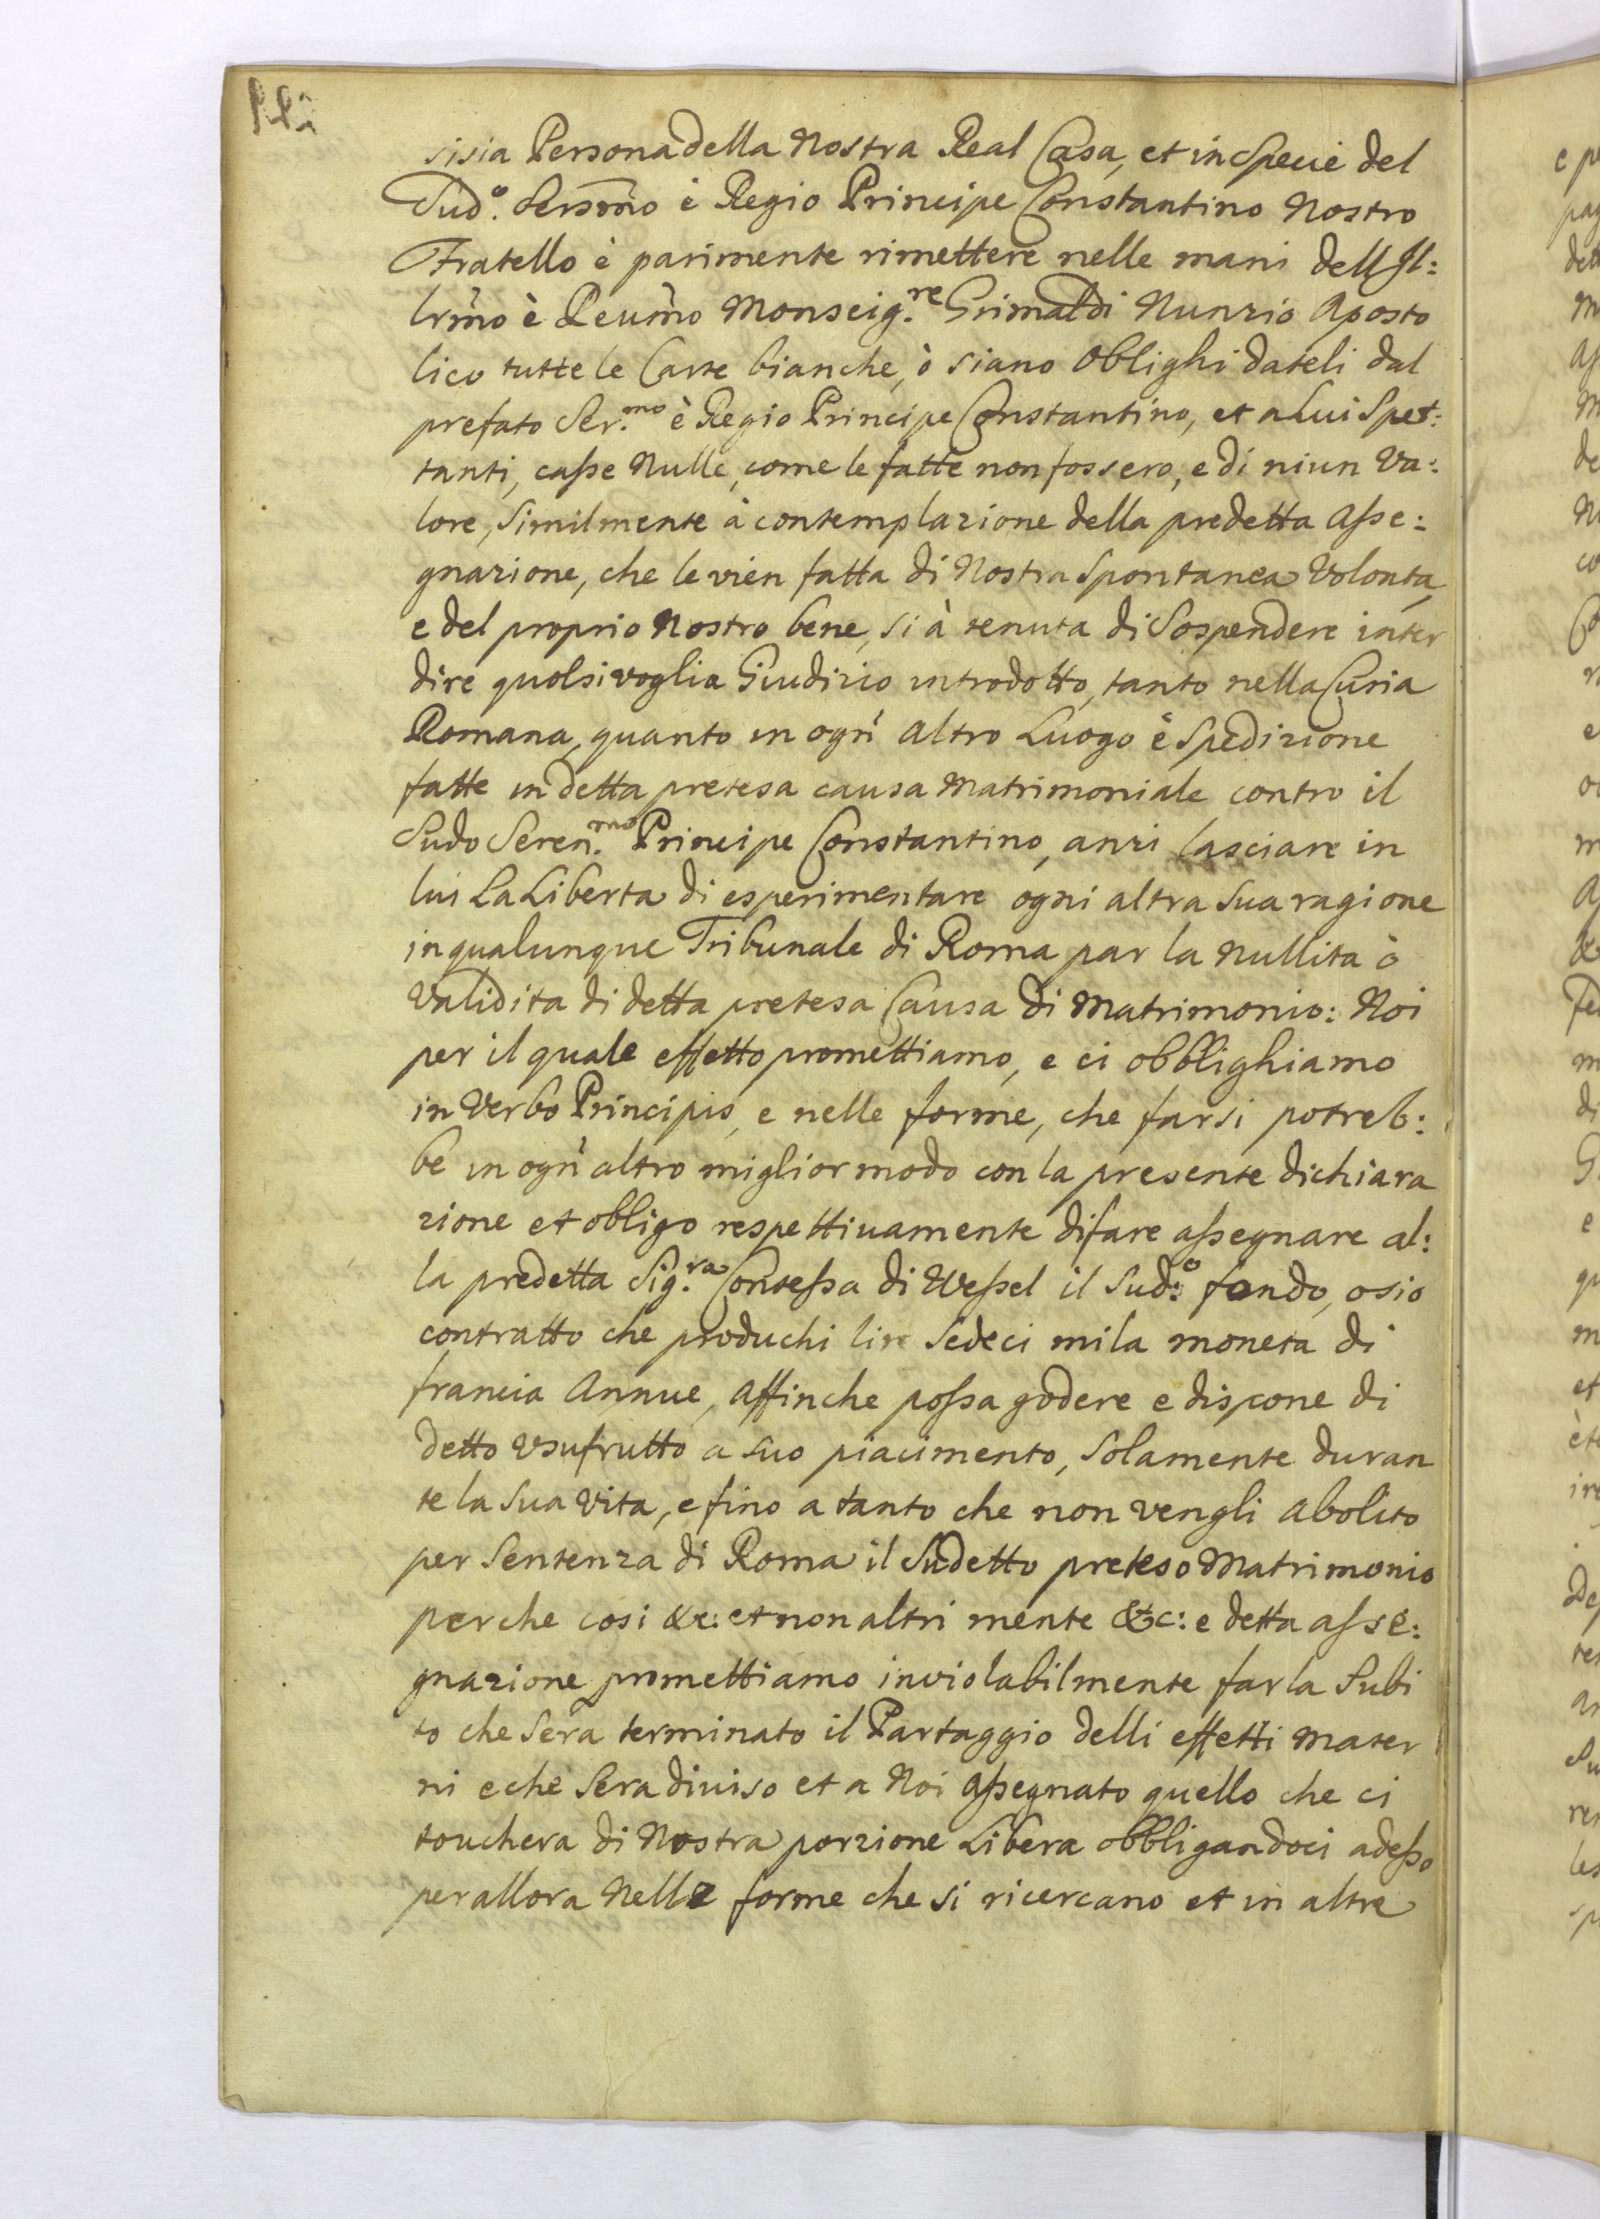 sisia Persona della Nostra Real Casa, et in Specie del
Sud.º Sersm̃o è Regio Principe Constantino Nostro
Fratello è parimente rimettere nelle mani dell Il:
lrm̃o è Reum̃o Monseig.re Grimaldi Nunzio Aposto
lico tutte le Carte bianche, ò siano Oblighi dateli dal
prefato Ser.mo è Regio Principe Constantino, et a Lui Spet:
tanti, casse Nulle, come le fatte non fossero, e di niun Va:
lore, Similmente à contemplazione della predetta Asse:
gnazione, che le vien fatta di Nostra Spontanea Volonta,
e del proprio Nostro bene, si à tenuta di Sospendere inter
dire qualsivoglia Giudizio introdotto, tanto nella Curia
Romana, quanto in ogni altro Luogo è Spedizione
fatte in detta pretesa causa Matrimoniale contro il
Sudo Seren.mo Principe Constantino, anzi lasciare in
lui La Liberta di esperimentare ogni altra Sua ragione
in qualunque Tribunale di Roma par la Nullita ò
Validita di detta pretesa Causa di Matrimonio: Noi
per il quale effetto promettiamo, e ci obblighiamo
in Verbo Principis, e nelle forme, che farsi potreb:
be in ogni altro miglior modo con la presente dichiara
zione et obligo respettiuamente di fare assegnare al:
la predetta Sig.ra Contessa di Wessel il Sud:º fondo, osio
contratto che produchi lire Sedeci mila moneta di
francia Annue, Affinche possa godere e dispone di
detto Vsufrutto a suo piacimento, Solamente duran
te la Sua Vita, e fino a tanto che non vengli Abolito
per Sentenza di Roma il Sudetto preteso Matrimonio
perche cosi &c: et non altri mente &c: e detta asse:
gnazione promettiamo inviolabilmente farla Subi
to che Sera terminato il Partaggio delli effetti Mater
ni e che Sera diuiso et a Noi Assegnato quello che ci
touchera di Nostra porzione Libera obbligandoci adesso
per allora Nelle forme che si ricercano et in altre